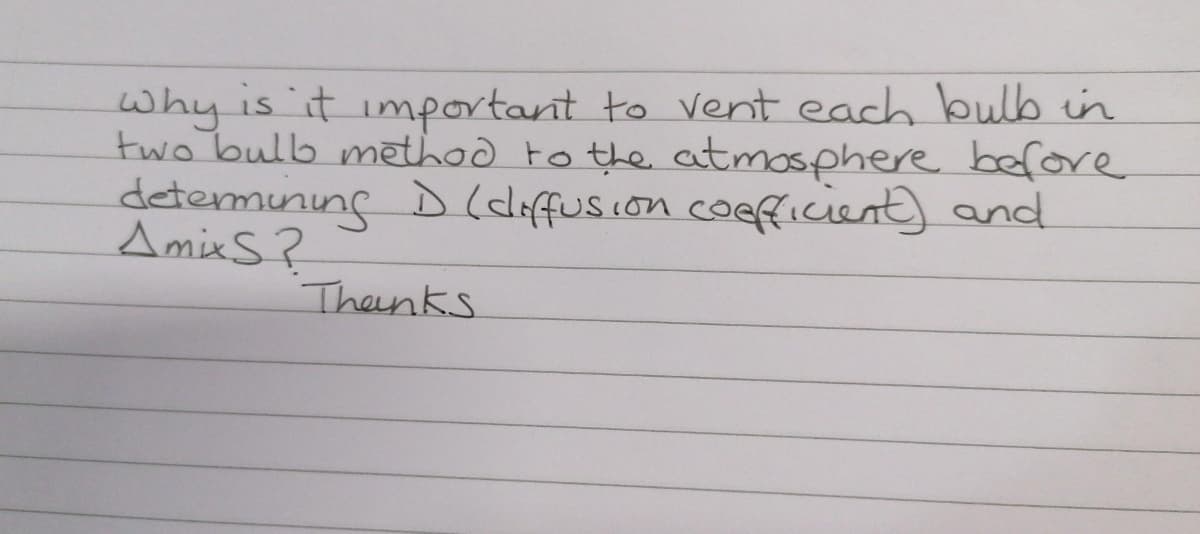 Why is it important to vent each bulb in
two bulb method to the atmosphere before
determining D (diffusion coefficient) and
ΔmixS?
Thanks